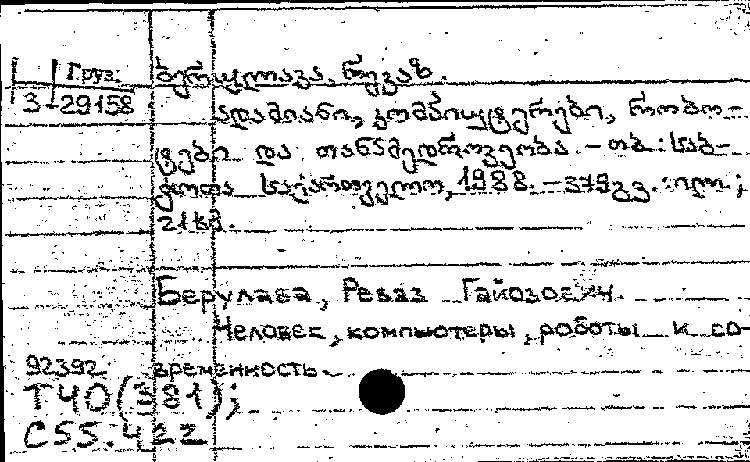 Груз.
3-29158
ბერულავა, რევაზ.
ადამიანი, კომპიუტერები, რობო-
ტები და თანამედროვეობა. - თბ.: საბ-
ჭოთა საქართველო, 1988. - 379 გვ.: ილ.;
21 სმ.
Берулава, Реваз Гайозович.
Человек, компьютеры, роботы и со-
временность.
92392
Т40(381);
С55.422